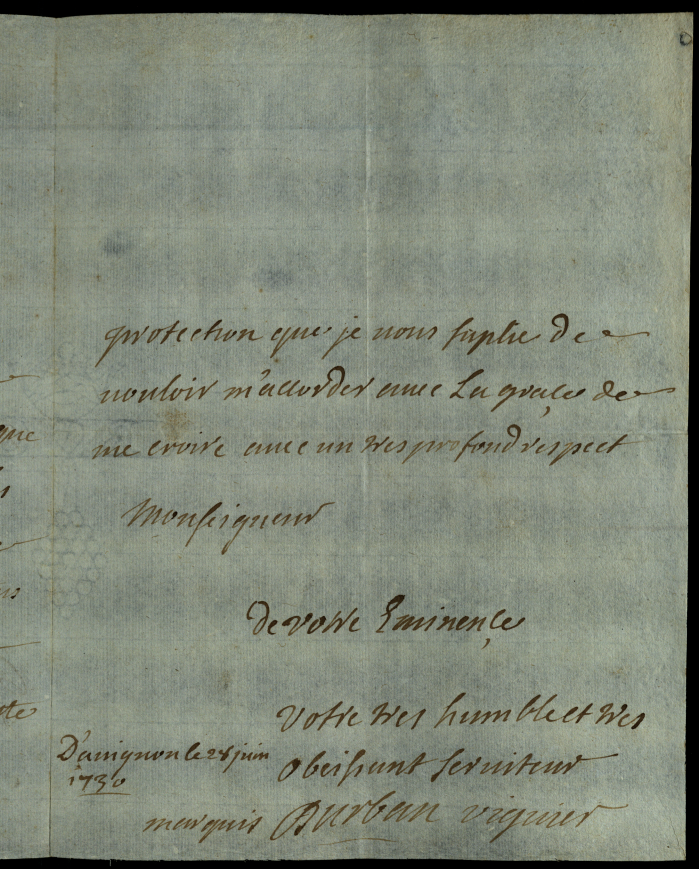 protection que je vous suplie de
vouloir m'accorder avec La graçe de
me croire avec un tres profond respect
Monseigneur
de votre Eminençe
votre tres humble et tres
D'avignon le 28 juin
obeissant serviteur
1730
marquis Durban viguier